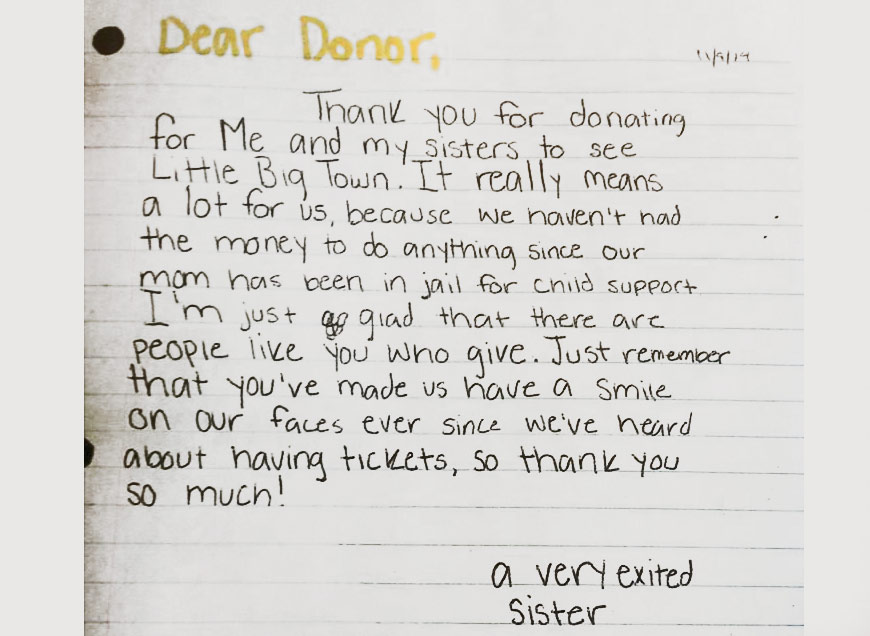 Dear Donor,
11/9/19
Thank you for donating
for Me and my sisters to see
Little Big Town. It really means
a lot for us, because we haven't had
the money to do anything since our
mom has been in jail for child support
I'm just glad that there are
people like you who give. Just remember
that you've made us have a smile
on our faces ever since we've heard
about having tickets, so thank you
so much!
a very exited
sister